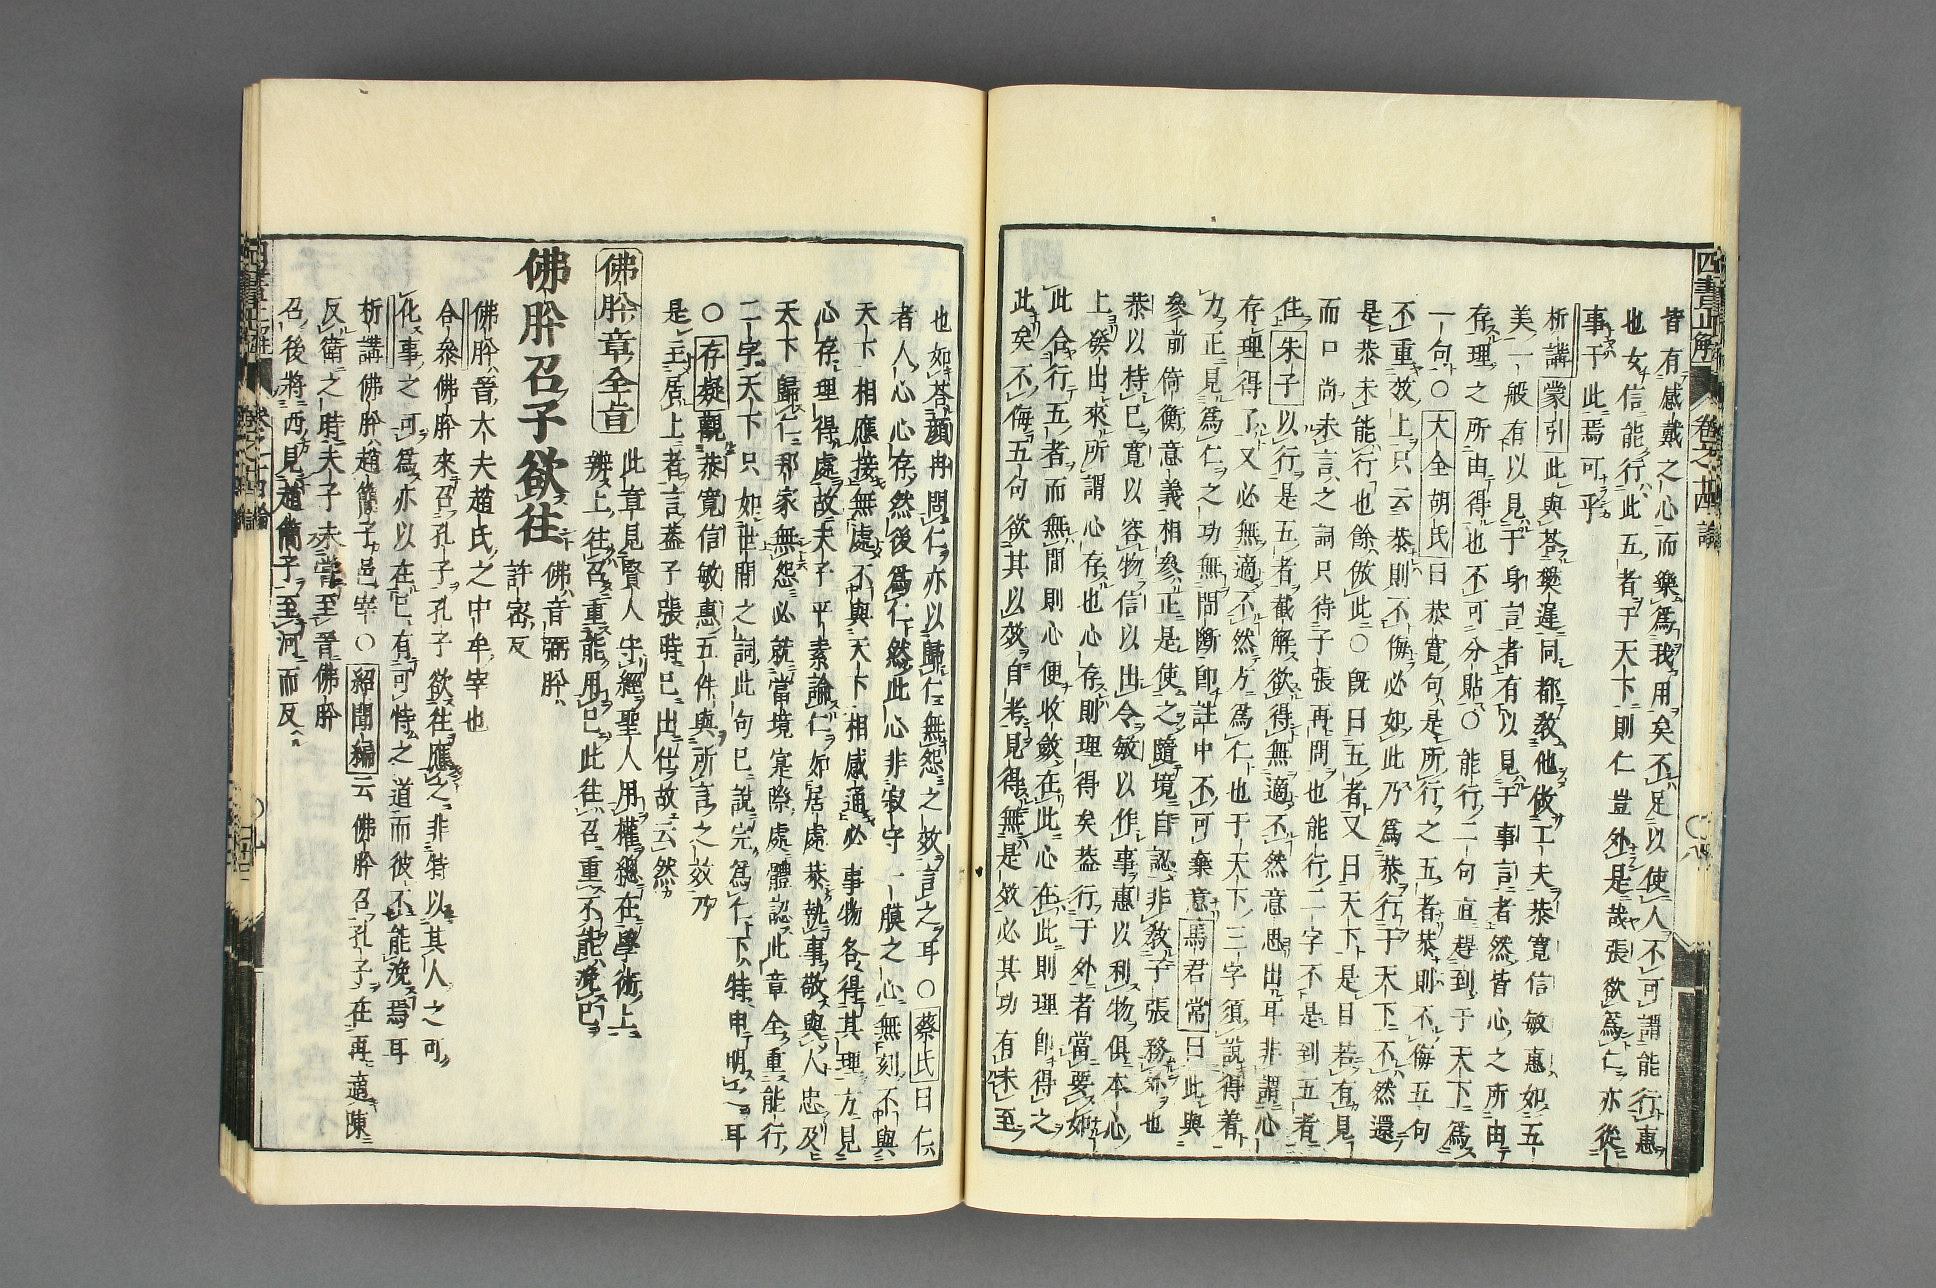 四書正解 卷之十四 論
皆有感戴之心而樂爲我用矣不足以使人不可謂能行惠
也女信能行此五者于天下則仁豈外是哉張欲爲仁亦從
事于此焉可乎
析講 蒙引 此與荅樊遲同都敎他做工夫恭寬信敏惠如五
美一般有以見于身言者有以見于事言者然皆心之所由
存理之所由得也不可分貼○能行二句直趕到于天下爲
一句○ 大全胡氏 曰恭寬句是所行之五者恭則不侮五句
不重效上只云恭則不侮必如此乃爲恭行于天下不然還
是恭未能行也餘倣此○旣曰五者又曰天下是日若有見
而口尚未言之詞只待子張再問也能行二字不是到五者
住 朱子 以行是五者截解欲得無適不然意思出耳非謂心
存理得了又必無適不然方爲仁也于天下三字須說得着
力正見爲仁之功無間斷卽註中不可棄意 馬君常 曰此與
參前倚衡意義相參正是使之隨境自認非敎子張務外也
恭以持已寬以容物信以出令敏以作事惠以利物俱本心
上發出來所謂心存也心存則理得矣葢行于外者當要如
此合行五者而無間則心便收斂在此心在此則理卽得之
此矣不侮五句欲其以效自考見得無是效必其功有未至
也如荅顏冉問仁亦以歸仁無怨之效言之耳○ 蔡氏 曰仁
者人心心存然後爲仁然此心非寂守一膜之心無刻不與
天下相應接無處不與天下相感通必事物各得其理方見
心存理得處故夫子平素論仁如居處恭執事敬與人忠及
天下歸仁邦家無怨必就當境寔際處體認此章全重能行
二字天下只如世間之詞此句已說完爲仁下特申明之耳
○ 存疑 觀恭寬信敏惠五件與所言之效乃
是主居上者言葢子張時已出仕故云然
佛肸章全旨
此章見賢人守經聖人用權總在學術上
辨上往召重能用已此往召重不能浼已
佛肸召子欲往
佛音弼肸
許宻反
佛肸晉大夫趙氏之中牟宰也
合叅佛肸來召孔子孔子欲往應之非特以其人之可
化事之可爲亦以在已有可恃之道而彼不能浼焉耳
析講佛肸趙簡子邑宰○ 紹聞編 云佛肸召孔子在再適陳
反衛之時夫子未嘗至晉佛肸
召後將西見趙簡子至河而反